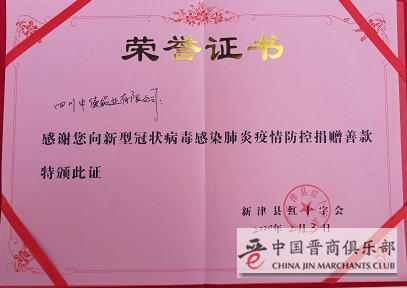 荣誉证书
四川中德铝业有限公司:
感谢您向新型冠状病毒感染肺炎疫情防控捐赠善款
特颁此证
新津县红十字会
2020年2月3日
中国晋商俱乐部
CHINA JIN MARCHANTS CLUB